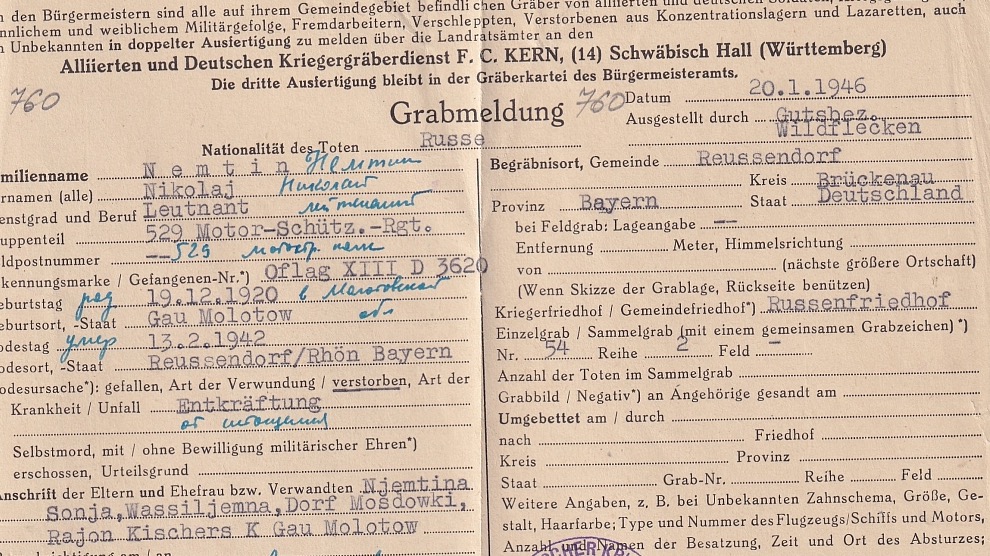 n den Bürgermeistern sind alle auf ihrem Gemeindegebiet befindlichen Gräber von alliierten und deutschen Soldaten,
nnlichem und weiblichem Militärgefolge, Fremdarbeitern, Verschleppten, Verstorbenen aus Konzentrationslagern und Lazaretten, auch
n Unbekannten in doppelter Ausfertigung zu melden über die Landratsämter an den
Alliierten und Deutschen Kriegergräberdienst F. C. KERN, (14) Schwäbisch Hall (Württemberg)
Die dritte Ausfertigung bleibt in der Gräberkartei des Bürgermeisteramts.
760
Grabmeldung 760
Nationalität des Toten Russe
milienname Nemtin Немтин
rnamen (alle) Nikolaj Николай
enstgrad und Beruf Leutnant лейтенант
uppenteil 529 Motor-Schütz.-Rgt.
ldpostnummer -- 529 мотостр. полк
kennungsmarke / Gefangenen-Nr.*) Oflag XIII D 3620
eburtstag род 19.12.1920 в Молотовской
eburtsort, -Staat Gau Molotow обл
odestag умер 13.2.1942
odesort, -Staat Reussendorf/Rhön Bayern
odesursache*): gefallen, Art der Verwundung / verstorben, Art der
Krankheit / Unfall Entkräftung
от истощения
Selbstmord, mit / ohne Bewilligung militärischer Ehren*)
erschossen, Urteilsgrund
Anschrift der Eltern und Ehefrau bzw. Verwandten Njemtina
Sonja,Wassiljemna,Dorf Mosdowki,
Rajon Kischers K Gau Molotow
Datum 20.1.1946
Ausgestellt durch Gutsbez.
Wildflecken
Begräbnisort, Gemeinde Reussendorf
Kreis Brückenau
Provinz Bayern Staat Deutschland
bei Feldgrab: Lageangabe —
Entfernung Meter, Himmelsrichtung
von (nächste größere Ortschaft)
(Wenn Skizze der Grablage, Rückseite benützen)
Kriegerfriedhof / Gemeindefriedhof*) Russenfriedhof
Einzelgrab / Sammelgrab (mit einem gemeinsamen Grabzeichen)*)
Nr. 54 Reihe 2 Feld -
Anzahl der Toten im Sammelgrab
Grabbild / Negativ*) an Angehörige gesandt am
Umgebettet am / durch
nach Friedhof
Kreis Provinz
Staat Grab-Nr. Reihe Feld
Weitere Angaben, z. B. bei Unbekannten Zahnschema, Größe, Ge-
stalt, Haarfarbe; Type und Nummer des Flugzeugs/Schiffs und Motors,
Anzahl und Namen der Besatzung, Zeit und Ort des Absturzes;